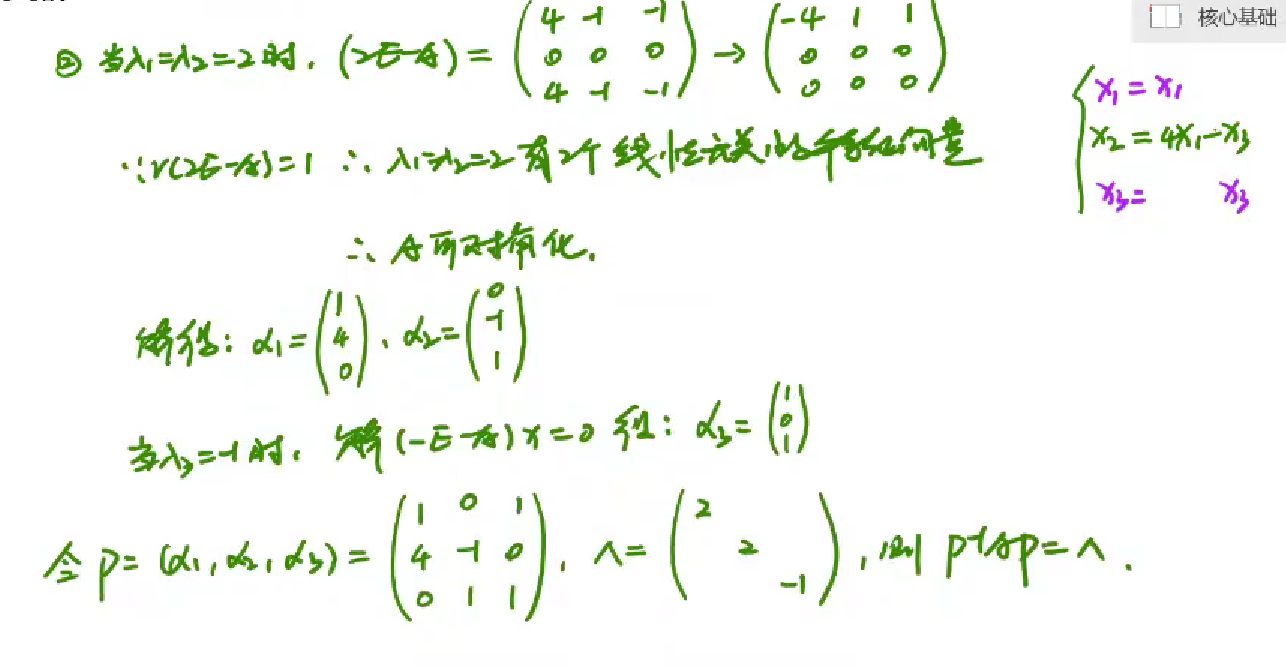 核心基础
② 当λ₁=λ₂=2时, (2E-A) = (4 -1 -1; 0 0 0; 4 -1 -1) → (-4 1 1; 0 0 0; 0 0 0)
{ x₁ = x₁
x₂ = 4x₁-x₃
x₃ = x₃
∵ r(2E-A)=1 ∴ λ₁=λ₂=2 有2个线性无关的特征向量
∴ A可对角化.
解得: α₁ = (1; 4; 0), α₂ = (0; -1; 1)
当λ₃=-1时, 解(-E-A)x=0 得: α₃ = (1; 0; 1)
令 P = (α₁, α₂, α₃) = (1 0 1; 4 -1 0; 0 1 1), Λ = (2; 2; -1), 则 P⁻¹AP = Λ.